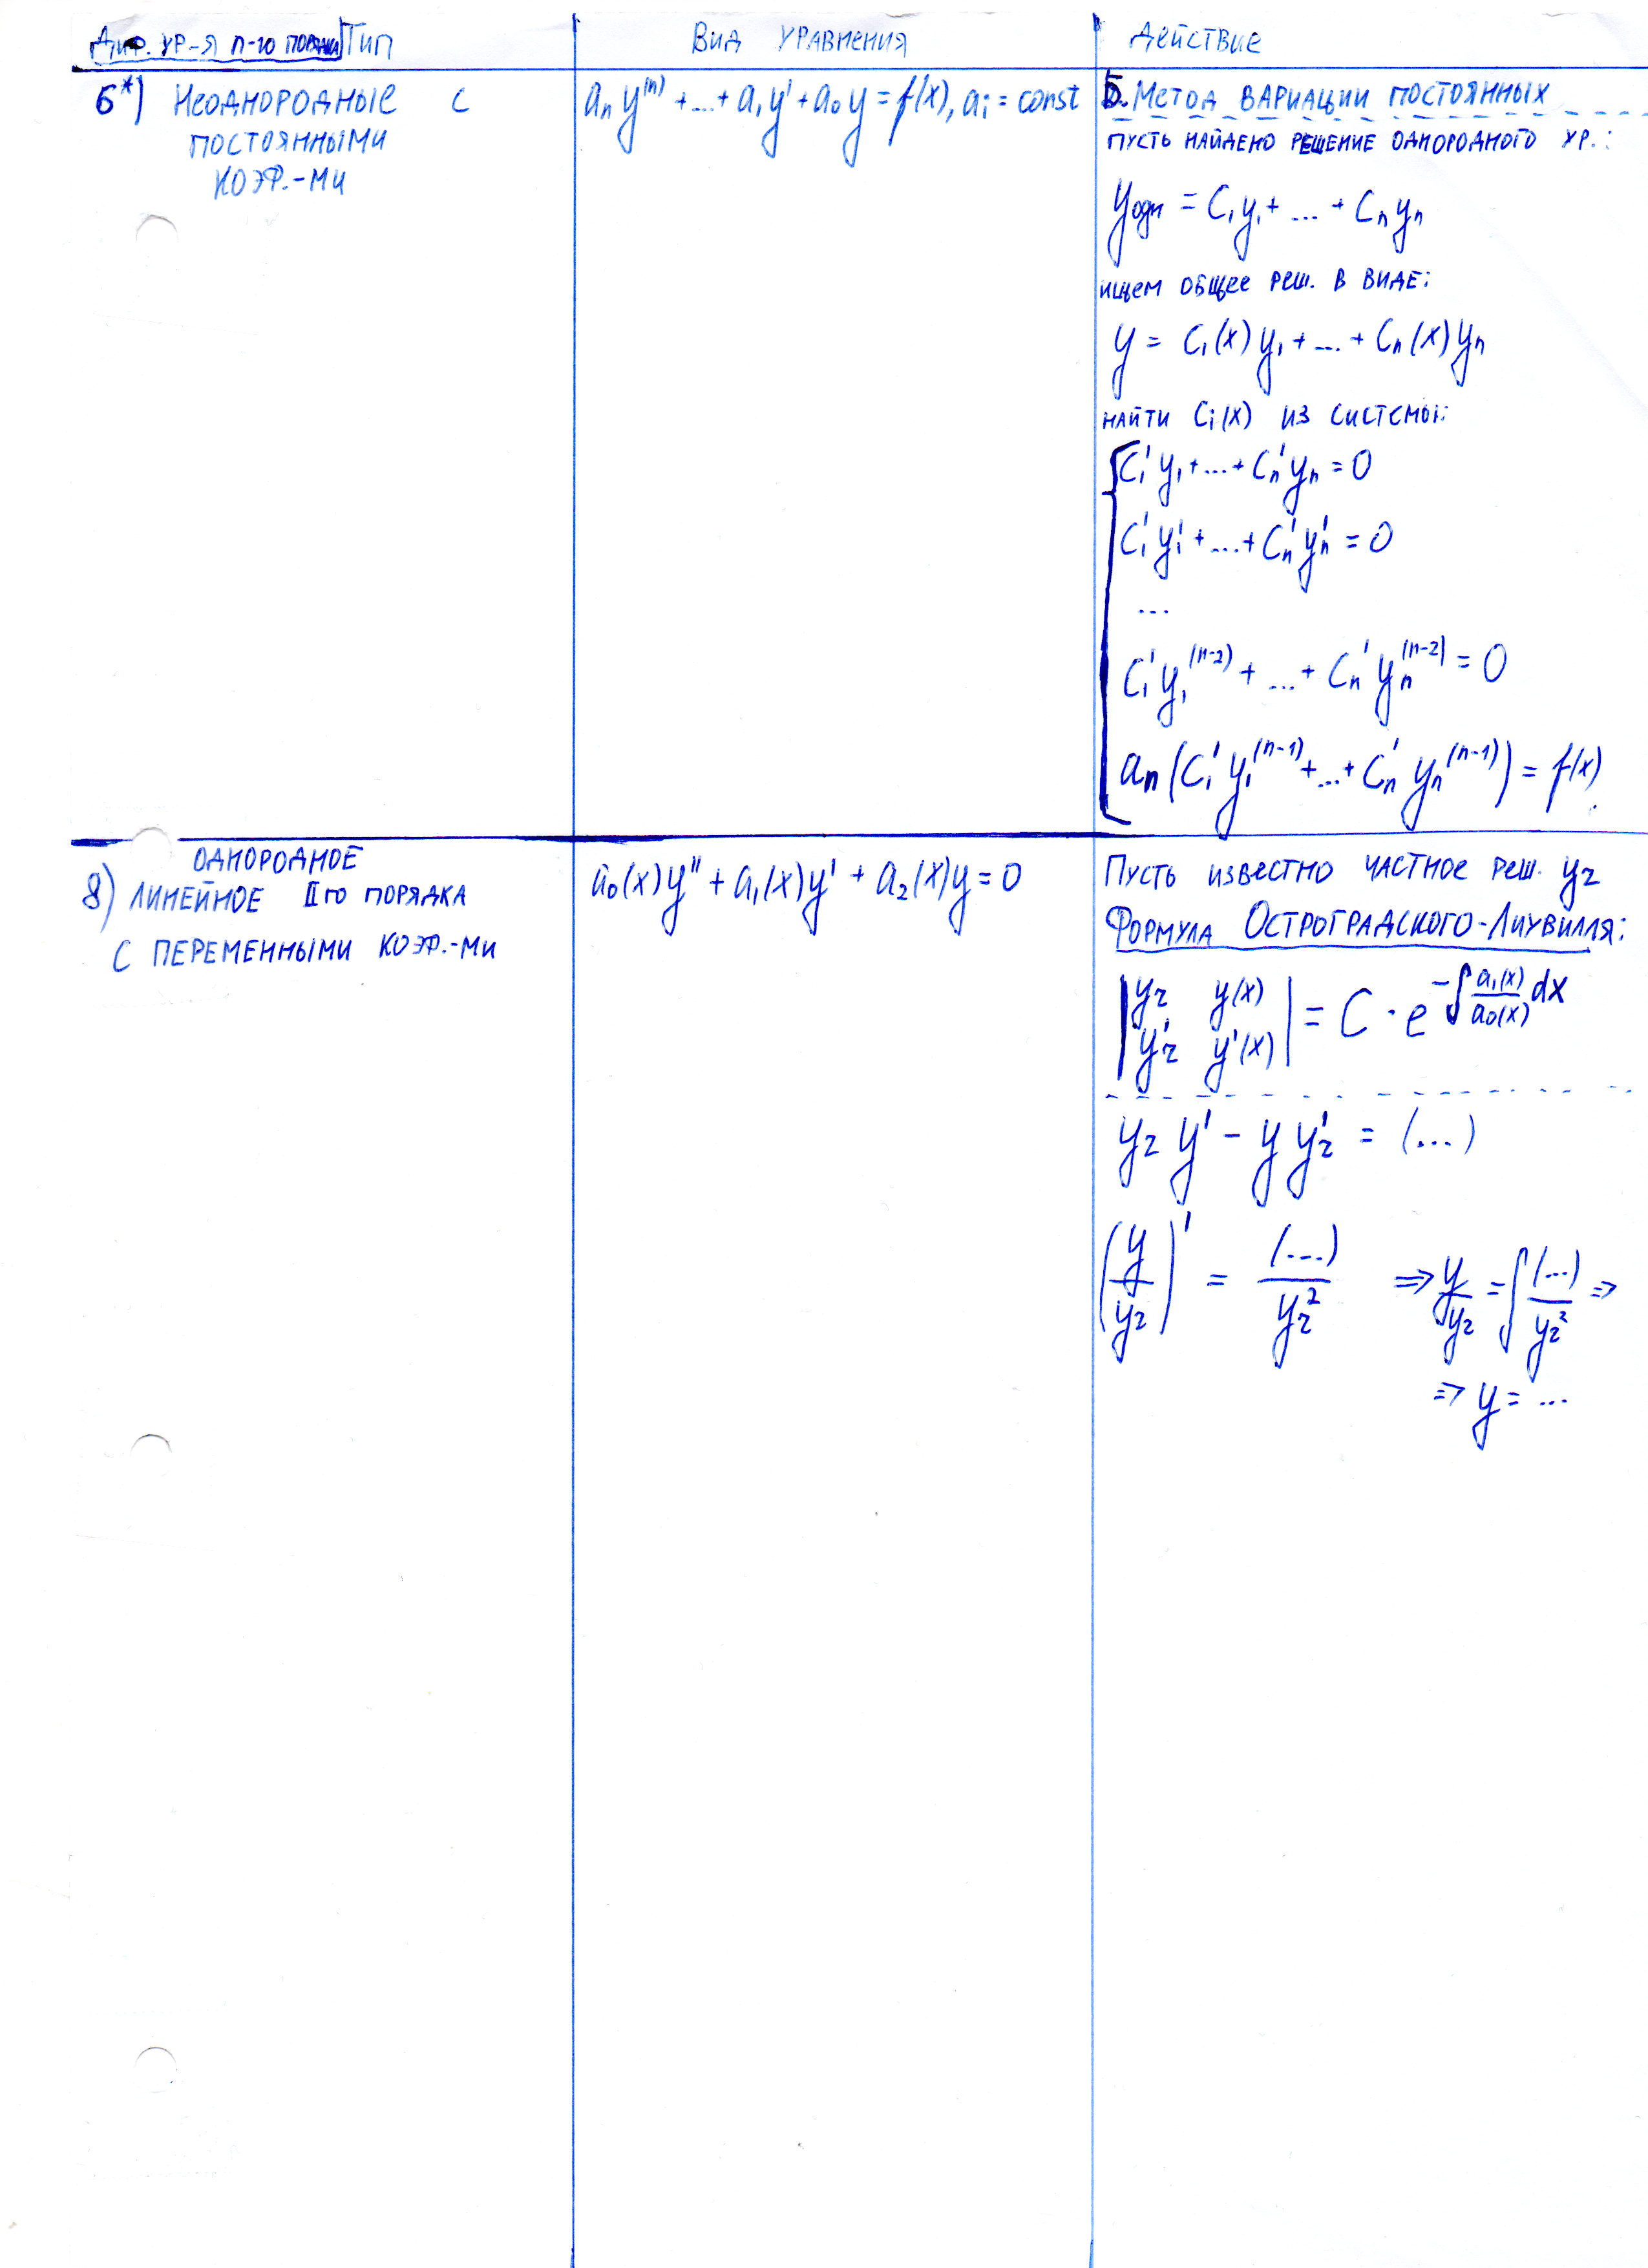 Диф. ур-я n-го порядка Тип Вид уравнения Действие
6*) Неоднородные с
постоянными
коэф.-ми
aₙy⁽ⁿ⁾ + ... + a₁y' + a₀y = f(x), aᵢ = const
Б. Метод вариации постоянных
пусть найдено решение однородного ур.:
yодн = C₁y₁ + ... + Cₙyₙ
ищем общее реш. в виде:
y = C₁(x)y₁ + ... + Cₙ(x)yₙ
найти Cᵢ(x) из системы:
C₁'y₁ + ... + Cₙ'yₙ = 0
C₁'y₁' + ... + Cₙ'yₙ' = 0
...
C₁'y₁⁽ⁿ⁻²⁾ + ... + Cₙ'yₙ⁽ⁿ⁻²⁾ = 0
aₙ(C₁'y₁⁽ⁿ⁻¹⁾ + ... + Cₙ'yₙ⁽ⁿ⁻¹⁾) = f(x)
однородное
8) линейное IIго порядка
с переменными коэф.-ми
a₀(x)y'' + a₁(x)y' + a₂(x)y = 0
Пусть известно частное реш. yч
Формула Остроградского-Лиувилля:
|yч y(x)|
|yч' y'(x)| = C · e^(-∫ a₁(x)/a₀(x) dx)
yч y' - y yч' = (...)
(y/yч)' = (...)/yч² ⇒ y/yч = ∫ (...)/yч² ⇒
⇒ y = ...